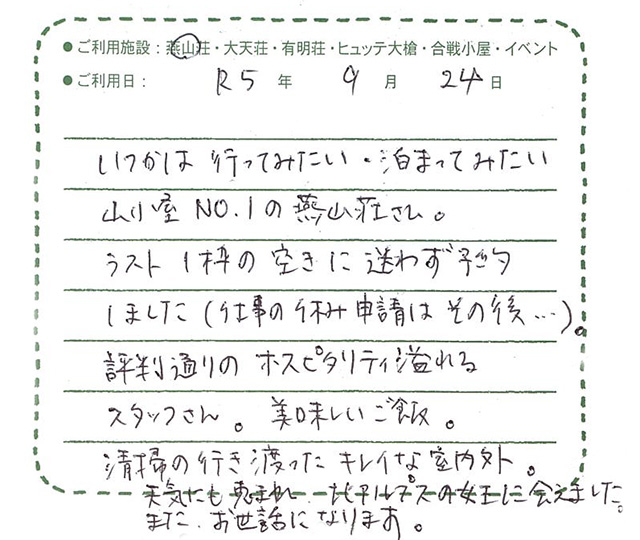 ●ご利用施設：燕山荘・大天荘・有明荘・ヒュッテ大槍・合戦小屋・イベント
●ご利用日： R5 年 9 月 24 日
いつかは 行ってみたい・泊まってみたい
山小屋 NO.1の 燕山荘さん。
ラスト 1枠の 空きに 迷わず 予約
しました（仕事の休み申請は その後…）。
評判通りの ホスピタリティ溢れる
スタッフさん。 美味しい ご飯。
清掃の行き渡った キレイな 室内外。
天気にも恵まれ 北アルプスの女王に会えました。
また お世話になります。